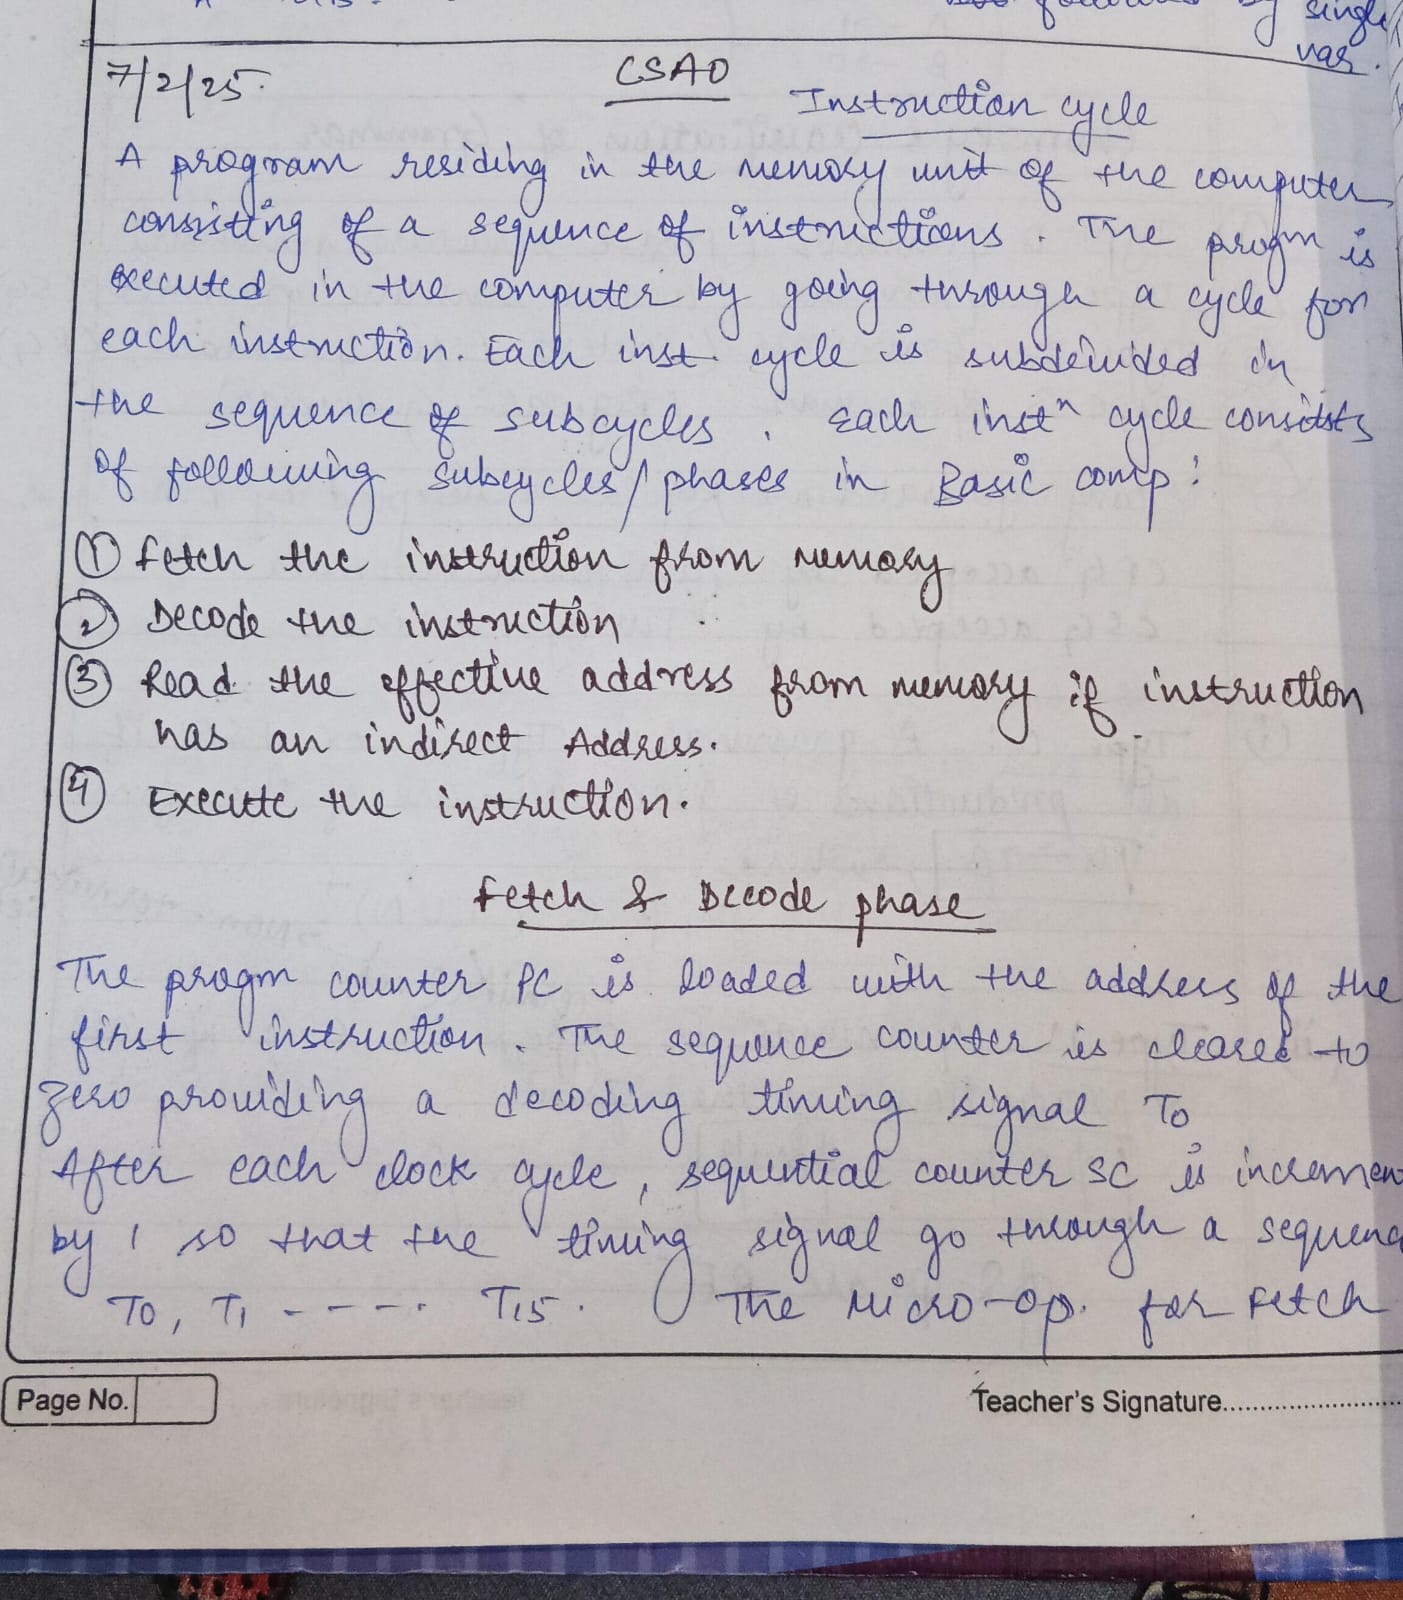 followed by single
var.
7/2/25.
CSAO
Instruction cycle
A program residing in the memory unit of the computer
consisting of a sequence of instructions. The progm is
executed in the computer by going through a cycle for
each instruction. Each inst. cycle is subdeivided in
the sequence of subcycles. Each instⁿ cycle consists
of following subcycles/phases in Basic comp:
① Fetch the instruction from memory
② Decode the instruction
③ Read the effective address from memory if instruction
has an indirect Address.
④ Execute the instruction.
Fetch & Decode phase
The progm counter PC is loaded with the address of the
first instruction. The sequence counter is cleared to
zero providing a decoding timing signal T0
After each clock cycle, sequential counter SC is incremen
by 1 so that the timing signal go through a sequenc
T0, T1 - - - - . T15. The Micro-op. for Fetch
Page No.
Teacher's Signature..............................